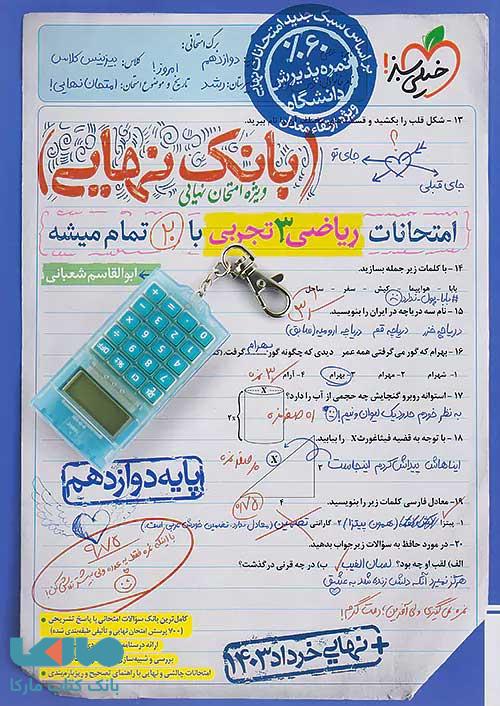 خیلی سبز!
بر اساس سبک جدید امتحانات نهایی
۶۰٪
نمره پذیرش
دانشگاه
ویژه ارتقاء معدل
برگ امتحانی:
دوازدهم
کلاس: بیزینس کلاس
امروز!
رشد
تاریخ و موضوع امتحان: امتحان نهایی!
۱۳ - شکل قلب را بکشید و
ببرید.
؟
جای تو
جای قبلی
(بانک نهایی)
ویژه امتحان نهایی
امتحانات ریاضی ۳ تجربی با ۲۰ تمام میشه
ابوالقاسم شعبانی
۱۴ - با کلمات زیر جمله بسازید.
بابا - هواپیما - کیش - سفر - ساحل
#بابا-پول-ندارد
۱۵ - نام سه دریاچه در ایران را بنویسید.
دریاچه خزر دریاچه قم دریاچه ارومیه (سابق)
۱۶ - بهرام که گور می گرفتی همه عمر دیدی که چگونه گور بهرام گرفت؟
۱- شهرام ۲- مهرام ۳- بهرام ۴- آرام
۱۷ - استوانه روبرو گنجایش چه حجمی از آب را دارد؟
به نظر خودم حدود یک لیوان و نیم!
2x
x
۱۸ - با توجه به قضیه فیثاغورث X را بیابید.
ایناهاش پیداش کردم اینجاست
X
۳
۴
پایه دوازدهم
۱۹ - معادل فارسی کلمات زیر را بنویسید.
۱- پیتزا (همون پیتزا) ۲- گارانتی تضمین (معادل ندارد، تضمین خودش عربی است)
۲۰ - در مورد حافظ به سؤالات زیر جواب بدهید.
الف) لقب او چه بود؟ لسان الغیب ب) در چه قرنی درگذشت؟
هرگز نمیرد آنکه دلش زنده شد به عشق
۹/۷۵
کامل‌ترین بانک سؤالات امتحانی با پاسخ تشریحی
(۷۰۰ پرسش امتحان نهایی و تألیفی طبقه‌بندی شده)
ارائه درسنامه
بررسی و شبیه‌ساز
امتحانات چالشی و نهایی با راهنمای تصحیح و ریزبارم‌بندی
+ نهایی خرداد ۱۴۰۳
مارکا
بانک کتاب مارکا